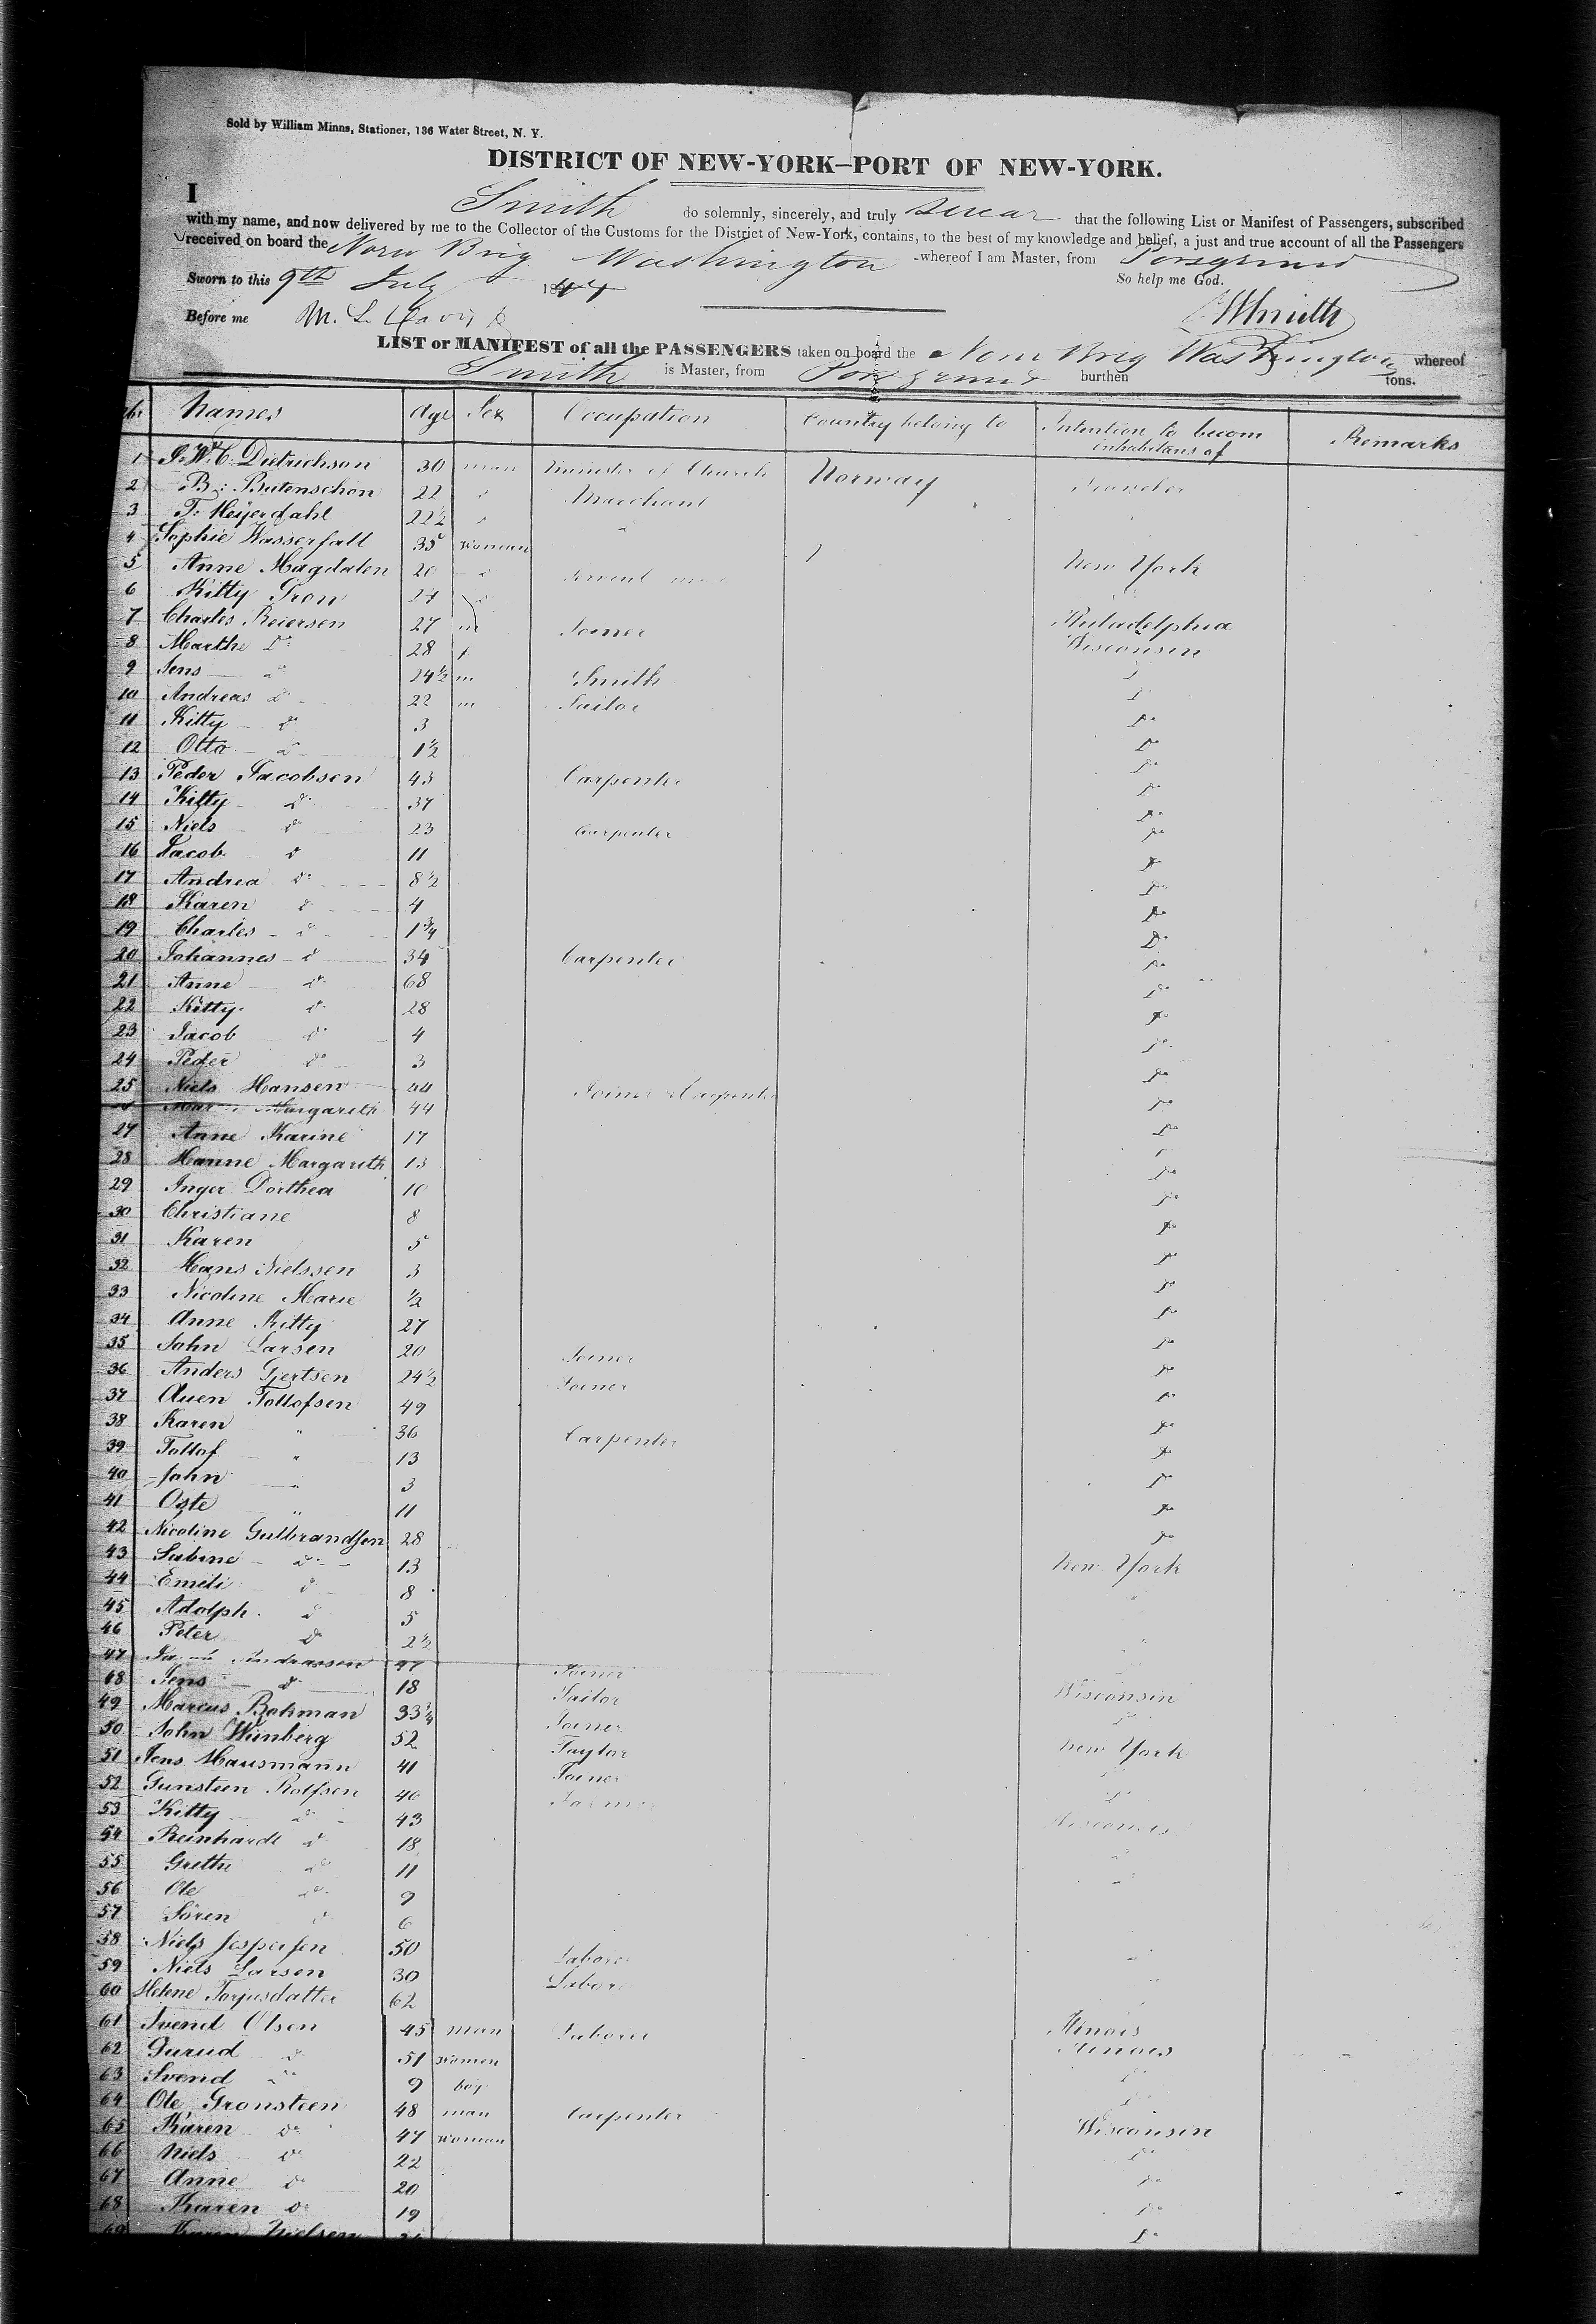 Sold by William Minns, Stationer, 136 Water Street, N. Y.
DISTRICT OF NEW-YORK—PORT OF NEW-YORK.
I Smith do solemnly, sincerely, and truly swear that the following List or Manifest of Passengers, subscribed
with my name, and now delivered by me to the Collector of the Customs for the District of New-York, contains, to the best of my knowledge and belief, a just and true account of all the Passengers
received on board the Norw Brig Washington whereof I am Master, from Porsgrund
Sworn to this 9th July 1844 So help me God.
Before me M. L. Davis Smith
LIST or MANIFEST of all the PASSENGERS taken on board the Norw Brig Washington whereof
Smith is Master, from Porsgrund burthen tons.
Names Age Sex Occupation Country belong to Intention to becom inhabitans of Remarks
1 J. W. C. Dietrichson 30 man Minister of Church Norway
2 B. Butenschon 22 " Merchant
3 T. Heyerdahl 22½ "
4 Sophie Wasserfall 35 woman
5 Anne Magdalen 20 " Servent New York
6 Kitty Tron 24
7 Charles Reiersen 27 m Joiner Philadelphia
8 Marthe Do 28 f Wisconsin
9 Jens do 24½ m Smith do
10 Andreas do 22 m Sailor do
11 Kitty do 3 do
12 Otto do 1½ do
13 Peder Jacobsen 43 Carpenter do
14 Kitty do 37 do
15 Niels do 23 Carpenter do
16 Jacob do 11 do
17 Andrea do 8½ do
18 Karen do 4 do
19 Charles do 1¾ do
20 Johannes do 34 Carpenter do
21 Anne do 68 do
22 Kitty do 28 do
23 Jacob do 4 do
24 Peder do 3 do
25 Niels Hansen 44 Joiner & Carpenter do
Margareth 44 do
27 Anne Karine 17 do
28 Hanne Margareth 13 do
29 Inger Dorthea 10 do
30 Christiane 8 do
31 Karen 5 do
32 Hans Nielssen 3 do
33 Nicoline Marie ½ do
34 Anne Kitty 27 do
35 John Larsen 20 Joiner do
36 Anders Gjertsen 24½ Joiner do
37 Auen Tollofsen 49 do
38 Karen " 36 Carpenter do
39 Tollof " 13 do
40 John " 3 do
41 Oste " 11 do
42 Nicoline Gulbrandsen 28 do
43 Sabine do 13 New York
44 Emili do 8
45 Adolph do 5
46 Peter do 2½
47 Andreassen 47 Joiner
48 Jens do 18 Sailor Wisconsin
49 Marcus Bohman 33¾ Joiner do
50 John Wiinberg 52 Taylor New York
51 Jens Hausmann 41 Joiner do
52 Gunsteen Rolfsen 46 do
53 Kitty do 43
54 Reinhardt do 18
55 Grethe do 11
56 Ole do 9
57 Sören do 6
58 Niels Jespersen 50 Laborer
59 Niels Larsen 30 Labor
60 Helene Torjusdatter 62
61 Svend Olsen 45 man Laborer Ilinois
62 Gurud do 51 women Ilinois
63 Svend do 9 boy do
64 Ole Gronsteen 48 man Carpenter
65 Karen do 47 woman Wisconsin
66 Niels do 22 do
67 Anne do 20 do
68 Karen do 19 do
69 Nielsen do